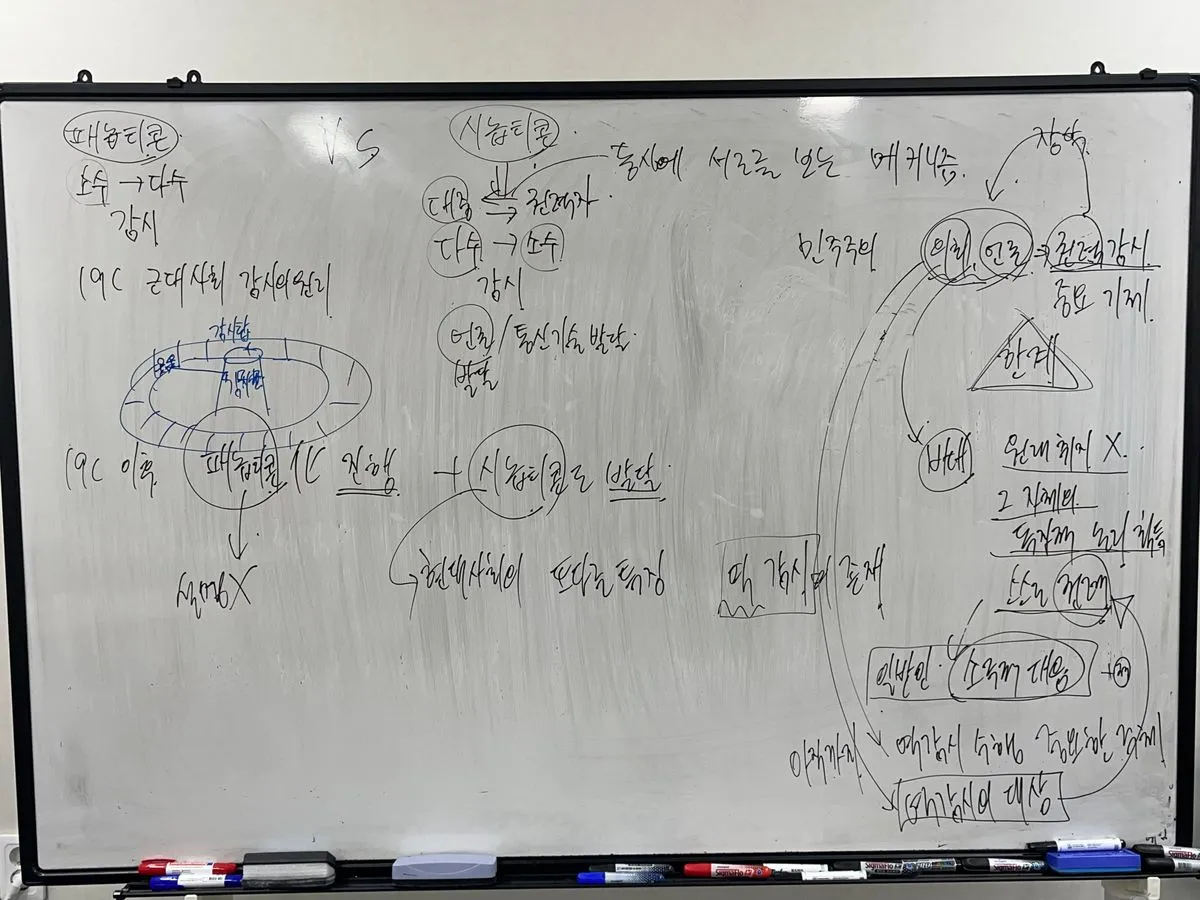 패놉티콘
VS
시놉티콘
소수 → 다수
감시
동시에 서로를 보는 메커니즘
대중 ⇄ 권력자
다수 → 소수
감시
언론 / 통신기술 발달
발달
19C 근대사회 감시의 원리
감시탑
19C 이후 패놉티콘化 진행 + 시놉티콘도 발달
설명X
현대사회의 또다른 특징
장악
민주주의 의회, 언론 ⇒ 권력감시
중요 기제
한계
반대
원래 취지 X
그 자체의
독자적 논리 획득
스스로 권력
역감시의 존재
일반인 소극적 대응
아직까지 역감시 수행 중요한 주체
역감시의 대상